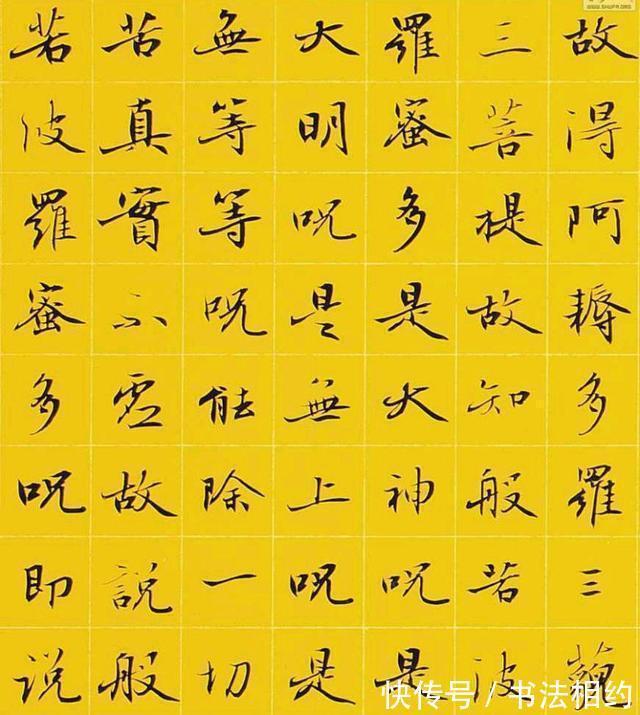 故得阿耨多羅三藐
三菩提故知般若波
羅蜜多是大神呪是
大明呪是無上呪是
無等等呪能除一切
苦真實不虛故說般
若波羅蜜多呪即說
快传号/书法相约